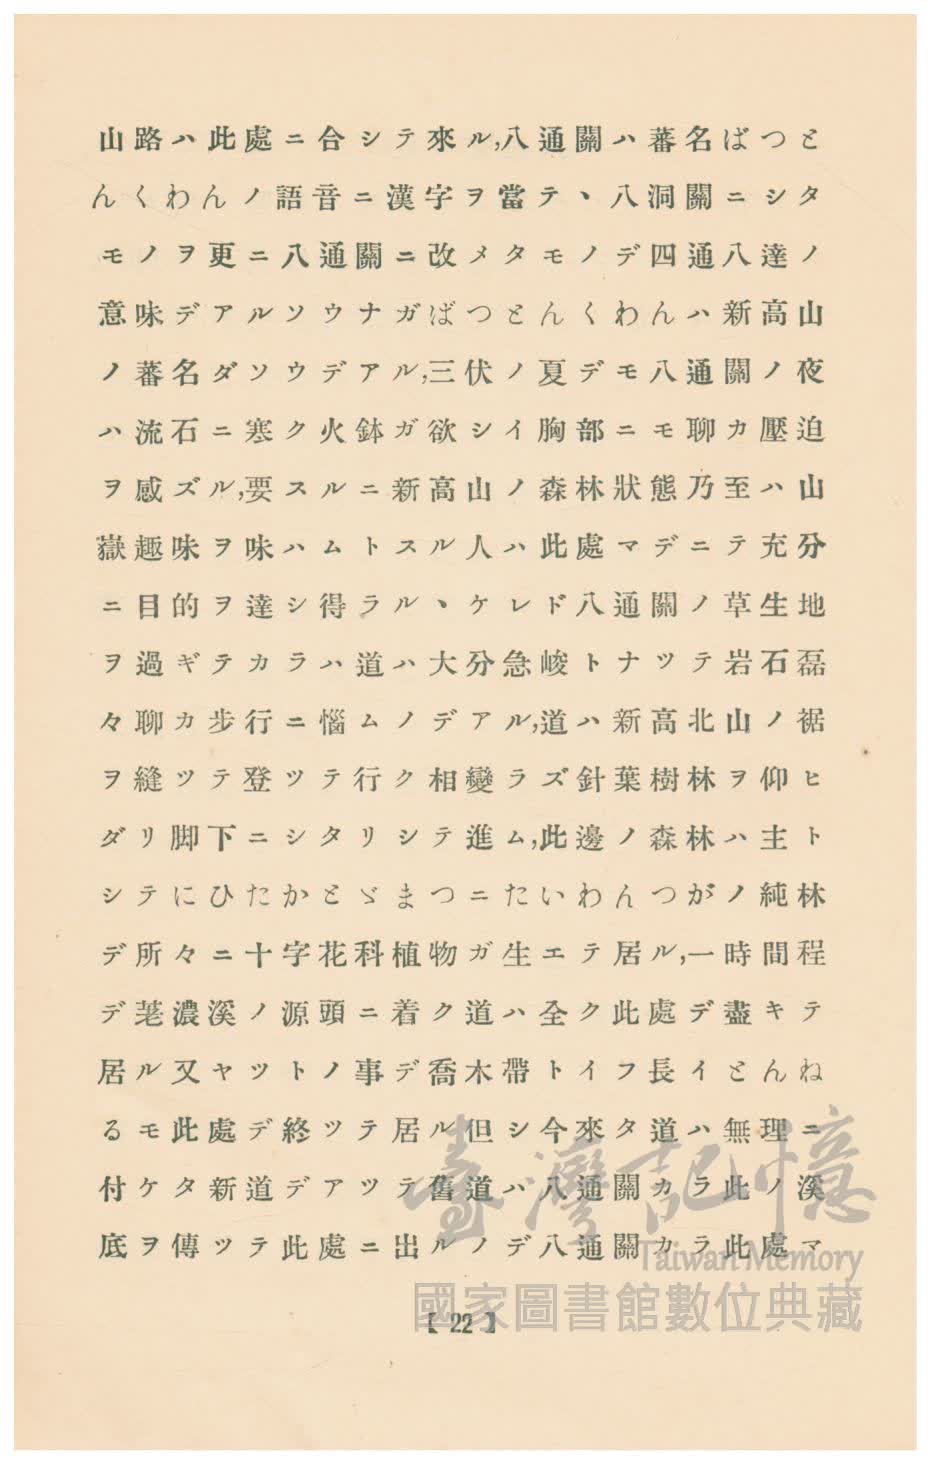 山路ハ此處ニ合シテ來ル,八通關ハ蕃名ばつと
んくわんノ語音ニ漢字ヲ當テ、八洞關ニシタ
モノヲ更ニ八通關ニ改メタモノデ四通八達ノ
意味デアルソウナガばつとんくわんハ新高山
ノ蕃名ダソウデアル,三伏ノ夏デモ八通關ノ夜
ハ流石ニ寒ク火鉢ガ欲シイ胸部ニモ聊カ壓迫
ヲ感ズル,要スルニ新高山ノ森林狀態乃至ハ山
嶽趣味ヲ味ハムトスル人ハ此處マデニテ充分
ニ目的ヲ達シ得ラル、ケレド八通關ノ草生地
ヲ過ギテカラハ道ハ大分急峻トナツテ岩石磊
々聊カ步行ニ惱ムノデアル,道ハ新高北山ノ裾
ヲ縫ツテ登ツテ行ク相變ラズ針葉樹林ヲ仰ヒ
ダリ脚下ニシタリシテ進ム,此邊ノ森林ハ主ト
シテにひたかとゞまつニたいわんつがノ純林
デ所々ニ十字花科植物ガ生エテ居ル,一時間程
デ荖濃溪ノ源頭ニ着ク道ハ全ク此處デ盡キテ
居ル又ヤツトノ事デ喬木帶トイフ長イとんね
るモ此處デ終ツテ居ル但シ今來タ道ハ無理ニ
付ケタ新道デアツテ舊道ハ八通關カラ此ノ溪
底ヲ傳ツテ此處ニ出ルノデ八通關カラ此處マ
【22】
臺灣記憶
Taiwan Memory
國家圖書館數位典藏